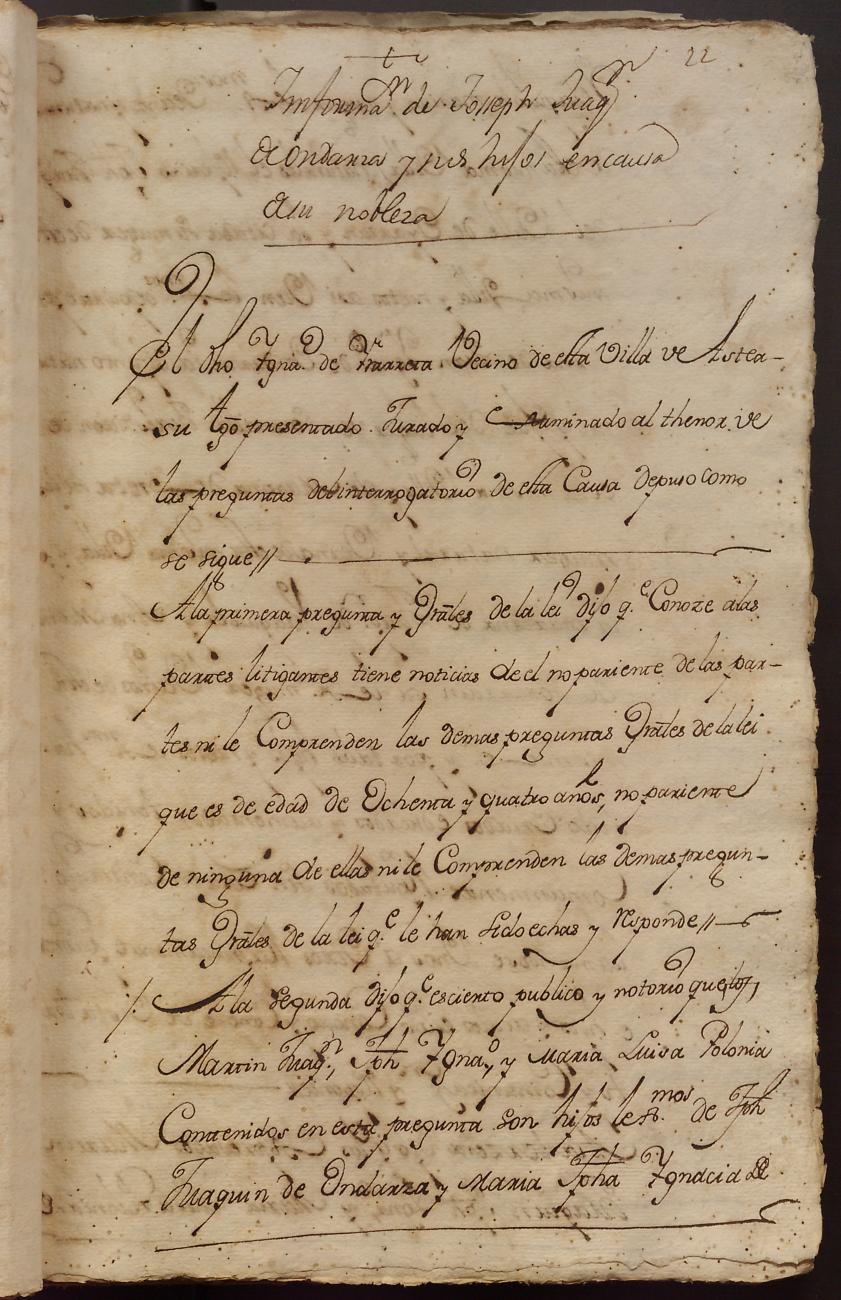 22
Informaⁿ de Joseph Juaqⁿ
de ondarza y sus hijos en causa
de su nobleza
El dho Ygnaº de Yrarreta Vecino de esta Villa de Astea-
su tgō presentado Jurado y examinado al thenor de
las preguntas del interrogatorio de esta Causa depuso como
se sigue //
A la primera pregunta y Grāles de la lei dijo q.ᵉ Conoze a las
partes litigantes tiene noticias de el no pariente de las par-
tes ni le Comprenden las demas preguntas Grāles de la lei
que es de edad de Ochenta y quatro años, no pariente
de ninguna de ellas ni le Comprenden las demas pregun-
tas Grāles de la lei q.ᵉ le han sido echas y responde //
/. A la segunda dijo q.ᵉ es cierto publico y notorio que los
Martin Juaq.ⁿ, Jph Ygnaº, y Maria Luisa Polonia
Contenidos en esta pregunta son hijos lexᵐᵒˢ de Jph
Juaquin de Ondarza y Maria Jpha Ygnacia de